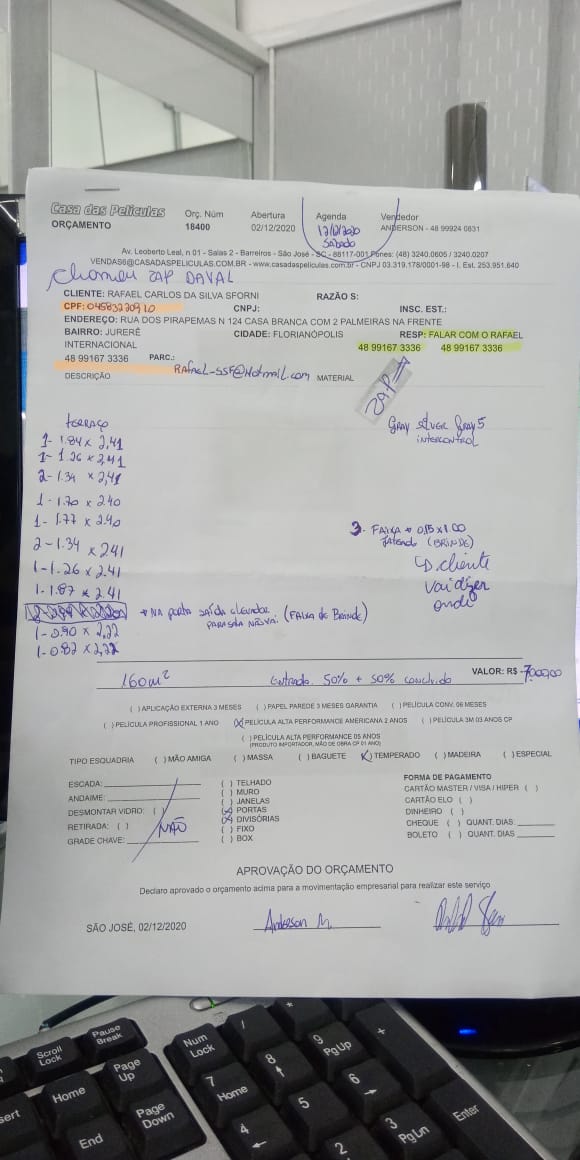 Casa das Películas Orç. Núm Abertura Agenda Vendedor
ORÇAMENTO 18400 02/12/2020 12/12/2020 ANDERSON - 48 99924 0831
Sábado
Av. Leoberto Leal, n 01 - Salas 2 - Barreiros - São José - SC - 88117-001 Fones: (48) 3240.0605 / 3240.0207
VENDAS6@CASADASPELICULAS.COM.BR - www.casadaspeliculas.com.br - CNPJ 03.319.178/0001-98 - I. Est. 253.951.640
chamou ZAP DAVAL
CLIENTE: RAFAEL CARLOS DA SILVA SFORNI RAZÃO S:
CPF: CNPJ: INSC. EST.:
ENDEREÇO: RUA DOS PIRAPEMAS N 124 CASA BRANCA COM 2 PALMEIRAS NA FRENTE
BAIRRO: JURERÊ CIDADE: FLORIANÓPOLIS RESP: FALAR COM O RAFAEL
INTERNACIONAL 48 99167 3336 48 99167 3336
48 99167 3336 PARC.: RAfael-SSF@Hotmail.com
DESCRIÇÃO MATERIAL
ZAP
GRAY SILVER GRAY 5
INTERCONTROL
terraço
1- 1.84 x 2,41
1- 1.26 x 2,41
2- 1.34 x 2,41
1- 1.70 x 2.40
1- 1.77 x 2.40
2- 1.34 x 2.41
1- 1.26 x 2.41
1- 1.87 x 2.41
* NA porta saída (FAIXA de Brinde)
1- 0.90 x 2,22
1- 0.82 x 2,22
3. FAIXA * 0,15 x 1.00
(BRINDE)
cliente
vai dizer
onde
160m² Entrada 50% + 50% concluido VALOR: R$ 7.000,00
( ) APLICAÇÃO EXTERNA 3 MESES ( ) PAPEL PAREDE 3 MESES GARANTIA ( ) PELÍCULA CONV. 06 MESES
( ) PELÍCULA PROFISSIONAL 1 ANO (X) PELÍCULA ALTA PERFORMANCE AMERICANA 2 ANOS ( ) PELÍCULA 3M 03 ANOS CP
( ) PELÍCULA ALTA PERFORMANCE 05 ANOS
(PRODUTO IMPORTADOR, MÃO DE OBRA CP 01 ANO)
TIPO ESQUADRIA ( ) MÃO AMIGA ( ) MASSA ( ) BAGUETE (X) TEMPERADO ( ) MADEIRA ( ) ESPECIAL
ESCADA: ( ) TELHADO FORMA DE PAGAMENTO
ANDAIME: ( ) MURO CARTÃO MASTER / VISA / HIPER ( )
DESMONTAR VIDRO: ( ) ( ) JANELAS CARTÃO ELO ( )
RETIRADA: ( ) NÃO (X) PORTAS DINHEIRO ( )
GRADE CHAVE: (X) DIVISÓRIAS CHEQUE ( ) QUANT. DIAS:
( ) FIXO BOLETO ( ) QUANT. DIAS
( ) BOX
APROVAÇÃO DO ORÇAMENTO
Declaro aprovado o orçamento acima para a movimentação empresarial para realizar este serviço
SÃO JOSÉ, 02/12/2020 Anderson M.
Scroll Lock
Pause Break
Num Lock
/
*
Home
Page Up
7 Home
8
9 PgUp
+
End
Page Down
4
5
6
2
3 PgDn
Enter